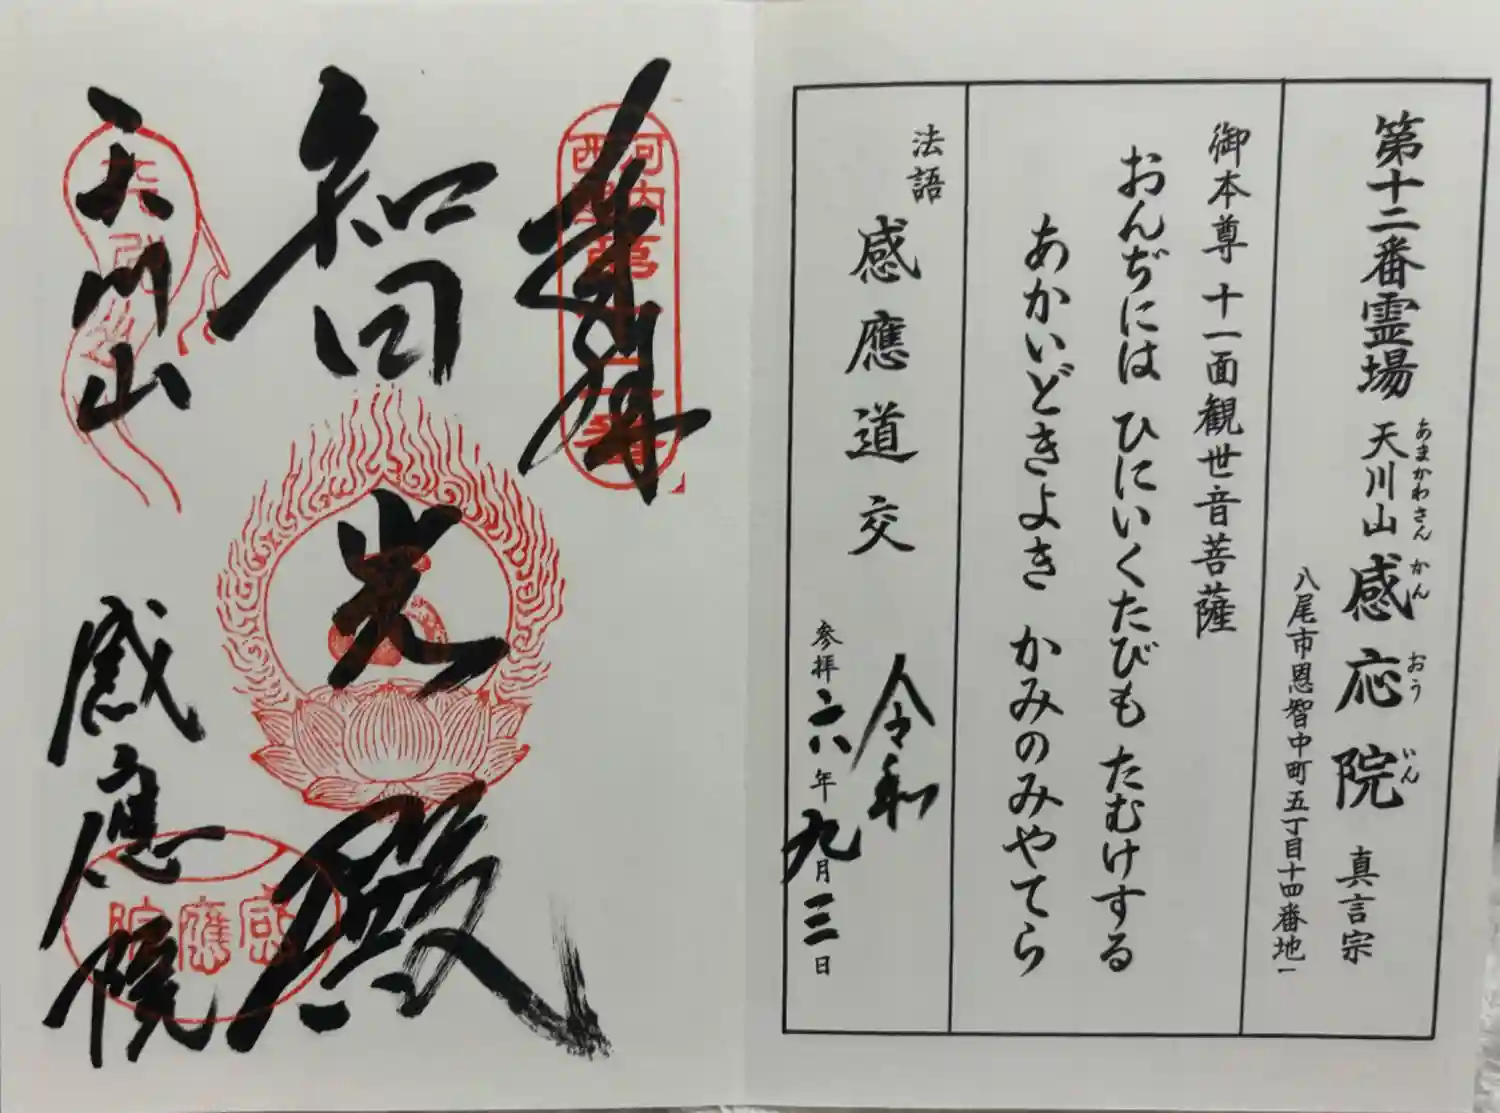 第十二番霊場 天川山 感応院 真言宗
あまかわさん かん おう いん
八尾市恩智中町五丁目十四番地一
御本尊 十一面観世音菩薩
おんぢには ひにいくたびも たむけする
あかいどきよき かみのみやてら
法語
感應道交
令和
参拝 六年九月三日
奉拝
河内
西国
智光殿
天川山
感應院
感應院